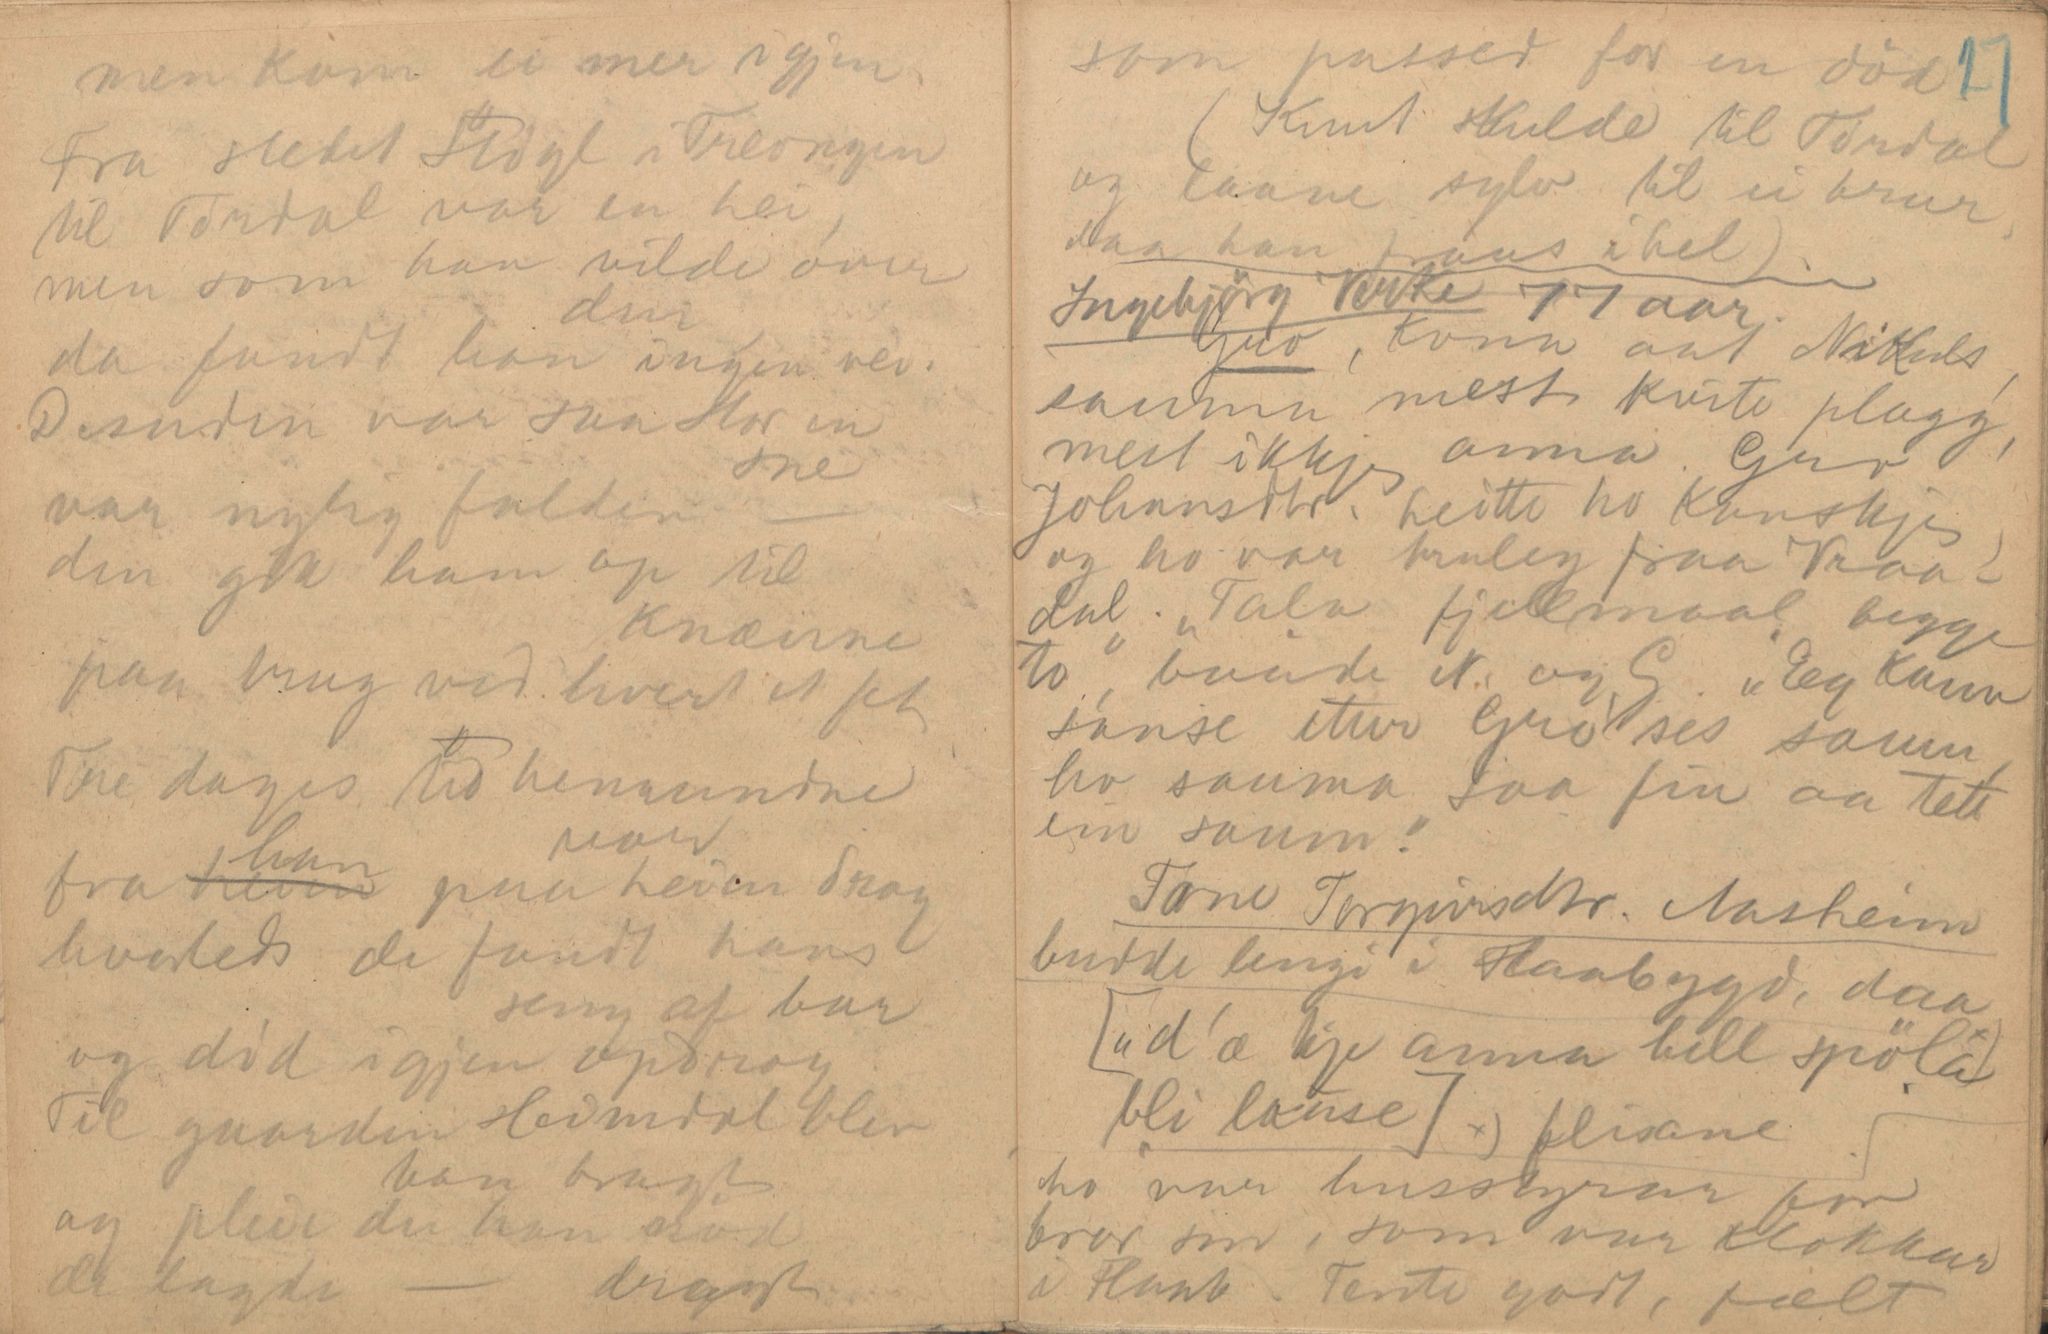 men kom ei mer igjen.
Fra stedet Stögl i Treongen
til Tördal var en hei,
men som han vilde over
den
da fandt han ingen vei.
Desuden var saa stor en
sne
var nylig falden —
den gik ham op til
knæerne
paa brug ved hvert et fet
Tre dages tid henrundne
var
fra han paa heien drog
hvorleds de fandt hans
seng af bar
og död igjen opdrog
Til gaarden Heimdal blev
han bragt
og pleie der han nöd
de lagde — dragt
som passed for en död. 27
(Knut skulde til Tördal
og laane sylv til ei brur,
daa han fraus ihel).
Ingebjörg Verke 77 aar.
Gro, kona aat Nikuls,
sauma mest kvite plagg,
mest ikkje anna. Gro
Johansdtr. heitte ho kanskje,
og ho var truleg fraa Vraa-
dal. "Tala fjellmaal begge
to", baade N. og G. "Eg kann
sanse etter Gro ses saum,
ho sauma saa fin aa tett
ein saum."
Tone Torgjusdtr. Aasheim
budde lengi i Flaabygd, daa
["d'æ kje anna hell spölā
bli lause] x) flisane
ho var husstyrar for
bror sin, som var klokkar
i Flaab. Tente godt, fælt